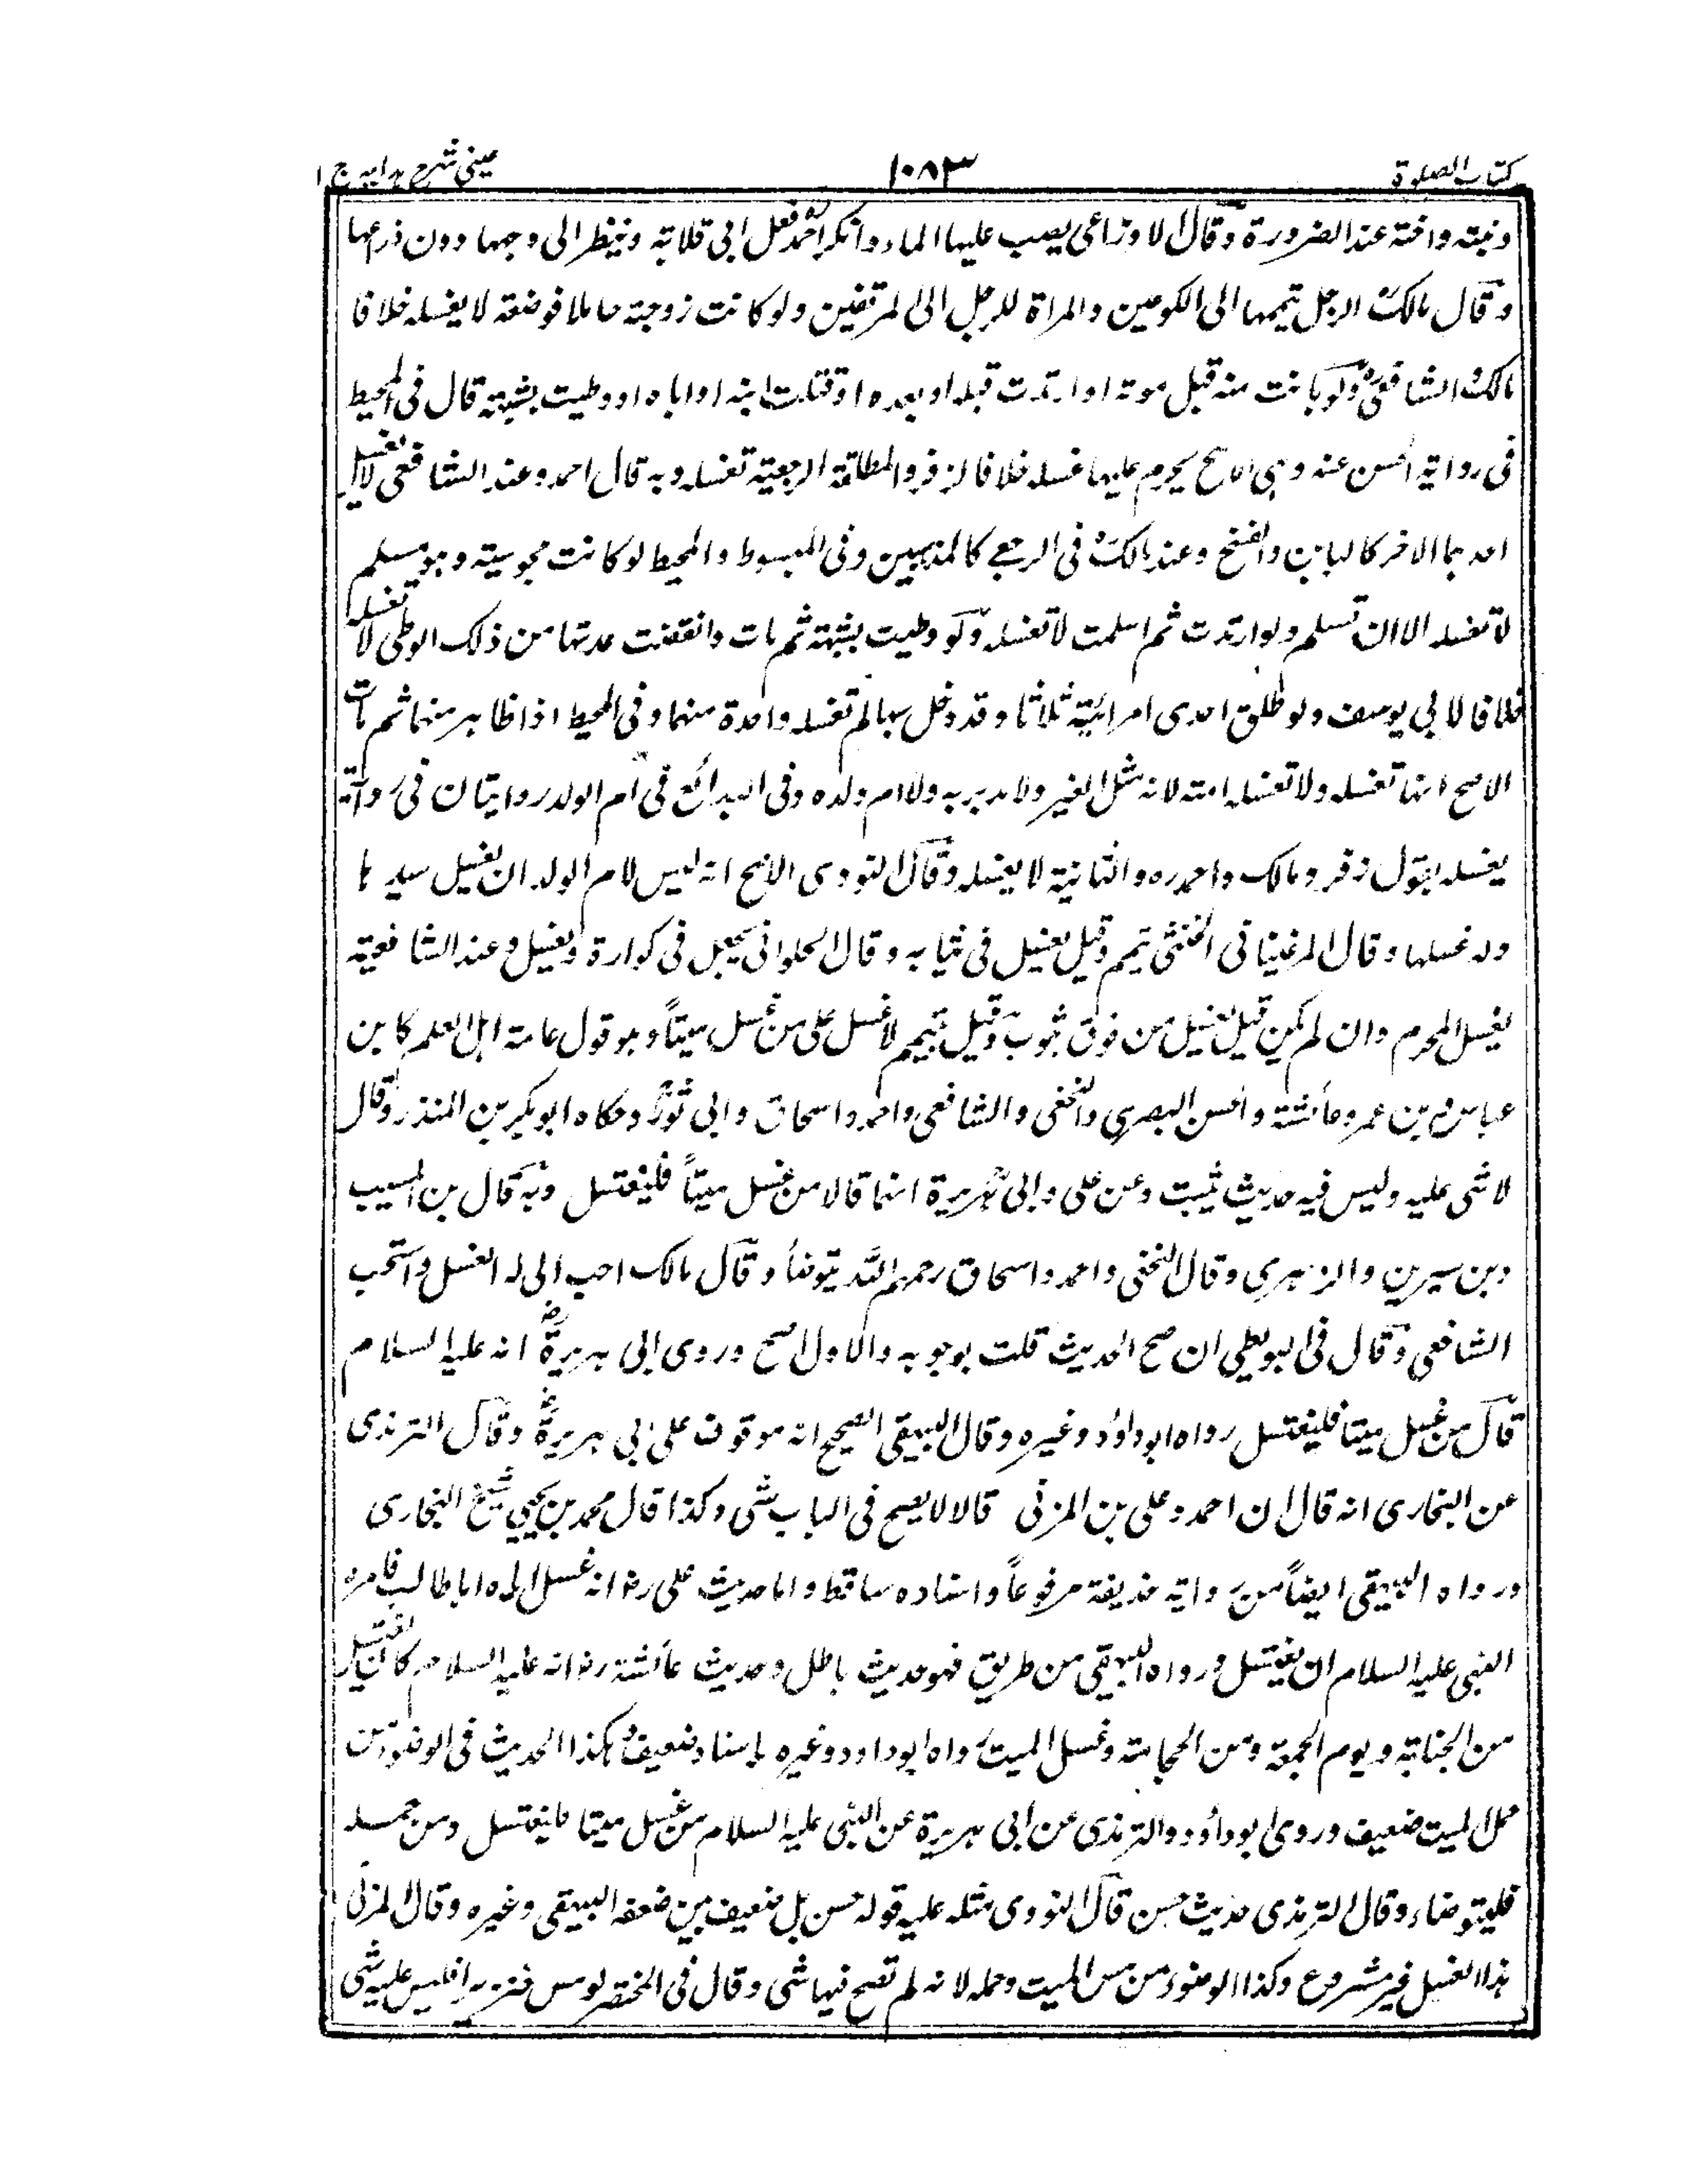 كتاب الصلوة ١٠٨٣ عينى شرح هدايه ج ١
وبنته واخته عند الضرورة وقال الاوزاعى يصب عليها الماء وانكر احمد فعل ابى قلابة وينظر الى وجهها دون ذراعها
وقال مالك الرجل تيممها الى الكوعين والمراة للرجل الى المرفقين ولو كانت زوجته حاملا فوضعة لا يغسله خلافا
مالك الشافعى ولو بانت منه قبل موته او ارتدت قبله او بعده او قتلت ابنه او اباه او وطيت بشبهة قال فى المحيط
فى رواية الحسن عنه وهى الاصح يحرم عليها غسله خلافا لزفر والمطلقة الرجعية تغسله وبه قال احمد وعند الشافعى لا يغسل
احدهما الاخر كالباين والفسخ وعند مالك فى الرجعے كالمذهبين وفى المبسوط والمحيط لو كانت مجوسية وهو مسلم
لا تغسله الا ان تسلم ولو ارتدت ثم اسلمت لا تغسله ولو وطيت بشبهة ثم مات وانقضت عدتها من ذلك الوطى لا تغسله
خلافا لابى يوسف ولو طلق احدى امرائية ثلاثا وقد دخل بهما لم تغسله واحدة منهما وفى المحيط اذا ظاهر منها ثم مات
الاصح انها تغسله ولا تغسله امته لانه مثل الغير ولا مدبره ولا ام ولده وفى البدائع فى ام الولد روايتان فى رواية
يغسله بقول زفر ومالك واحمد ره والثانية لا يغسله وقال النووى الاصح انه ليس لام الولد ان يغسل سيدها
وله غسلها وقال المرغينانى الخنثى تيمم وقيل يغسل فى ثيابه وقال الحلوانى يجعل فى كوارة ويغسل وعند الشافعية
يغسل المحرم وان لم يكن قيل يغسل من فوق ثوب وقيل تيمم لا غسل على من غسل ميتاً وهو قول عامة اهل العلم كابن
عباس وبن عمر وعائشة والحسن البصرى والنخعى والشافعى واحمد واسحاق وابى ثور وحكاه ابو بكر بن المنذر وقال
لا شى عليه وليس فيه حديث ثبت وعن على وابى هريرة انهما قالا من غسل ميتاً فليغتسل وبه قال بن المسيب
وبن سيرين والزهرى وقال النخعى واحمد واسحاق رحمهم الله يتوضأ وقال مالك احب الى له الغسل واستحب
الشافعى وقال فى البويطى ان صح الحديث قلت بوجوبه والاول اصح وروى ابى هريرة انه عليه السلام
قال من غسل ميتا فليغتسل رواه ابو داؤد وغيره وقال البيهقى الصحيح انه موقوف على ابى هريرة وقال الترمذى
عن البخارى انه قال ان احمد وعلى بن المزنى قالا لا يصح فى الباب شى وكذا قال محمد بن يحيى شيخ البخارى
ورواه البيهقى ايضاً من رواية حذيفة مرفوعاً واسناده ساقط واما حديث على رض انه غسل اباه ابا طالب فامره
النبى عليه السلام ان يغتسل ورواه البيهقى من طريق فهو حديث باطل وحديث عائشة رض انه عليه السلام كان يغتسل
من الجنابة ويوم الجمعة ومن الحجامة وغسل الميت رواه ابو داود وغيره باسناد ضعيف هكذا الحديث فى الوضوء من
حمل الميت ضعيف وروى ابو داؤد والترمذى عن ابى هريرة عن النبى عليه السلام من غسل ميتا فليغتسل ومن حمله
فليتوضاء وقال الترمذى حديث حسن قال النووى مثله عليه قوله حسن بل ضعيف بين ضعفه البيهقى وغيره وقال المزنى
هذا الغسل غير مشروع وكذا الوضوء من مس الميت وحمله لانه لم تصح فيها شى وقال فى المختصر لو مس خنزيرا فليس عليه شى